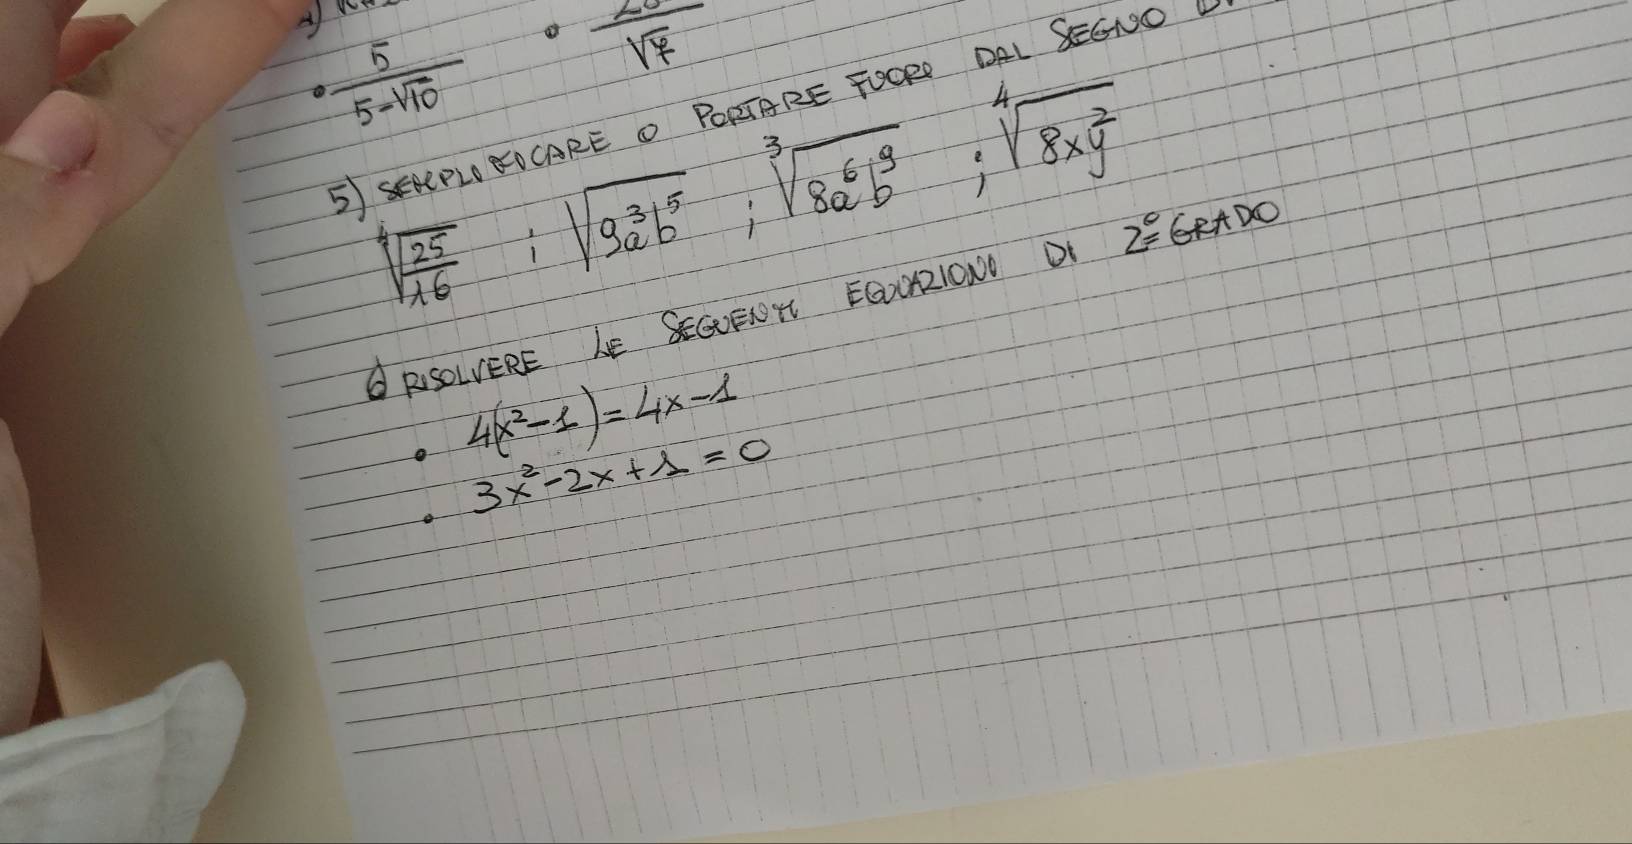 5/(5-√10) • /√7
5) SEMPLIFICARE O PORTARE FUORI DAL SEGNO
⁴√(25/16) ; √(9a³b⁵) ; ³√(8a⁶b⁹) ; ⁴√(8xy²)
6 RISOLVERE LE SEGUENTI EQUAZIONI DI 2° GRADO
• 4(x²-1)=4x-1
• 3x²-2x+1=0